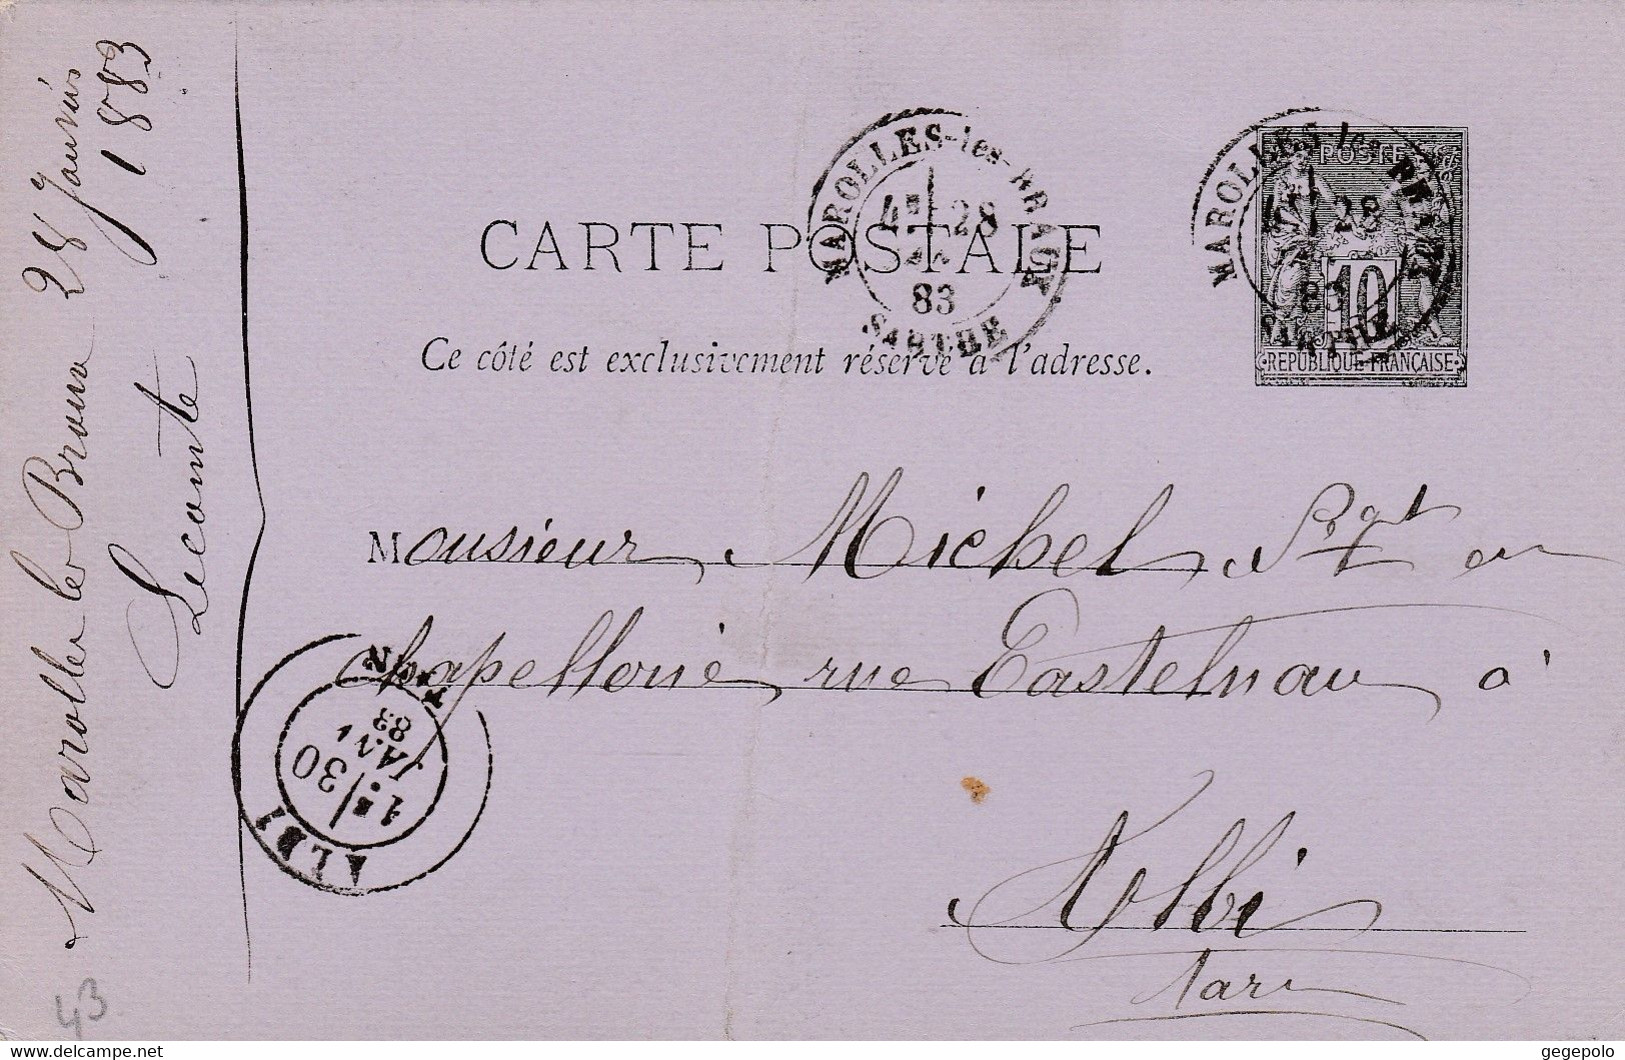 Marolles les Braux 28 Janvier
1883
Lecomte
MAROLLES-les-BRAUX
4E 28
83
SARTHE
MAROLLES-les-BRAUX
28
83
SARTHE
POSTE
10
REPUBLIQUE FRANÇAISE
CARTE POSTALE
Ce côté est exclusivement réservé à l'adresse.
Monsieur Michel Rgt en
chapellerie rue Castelnau à
Albi
Tarn
ALBI
1E 30
JANV
83
TARN
43
www.delcampe.net
gegepolo